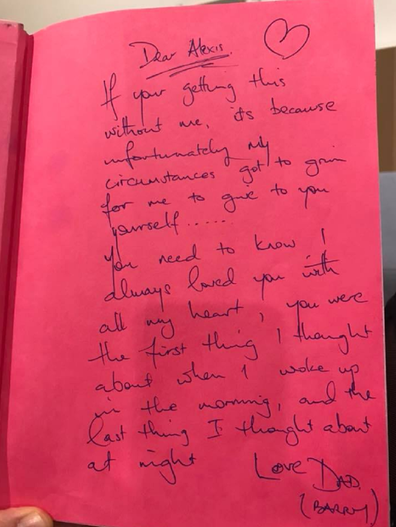 Dear Alexis.
If your getting this
without me, its because
unfortunately my
circumstances got to grim
for me to give to you
yourself.....
You need to know I
always loved you with
all my heart, you were
the first thing I thought
about when I woke up
in the morning, and the
last thing I thought about
at night Love DAD
(BARRY)